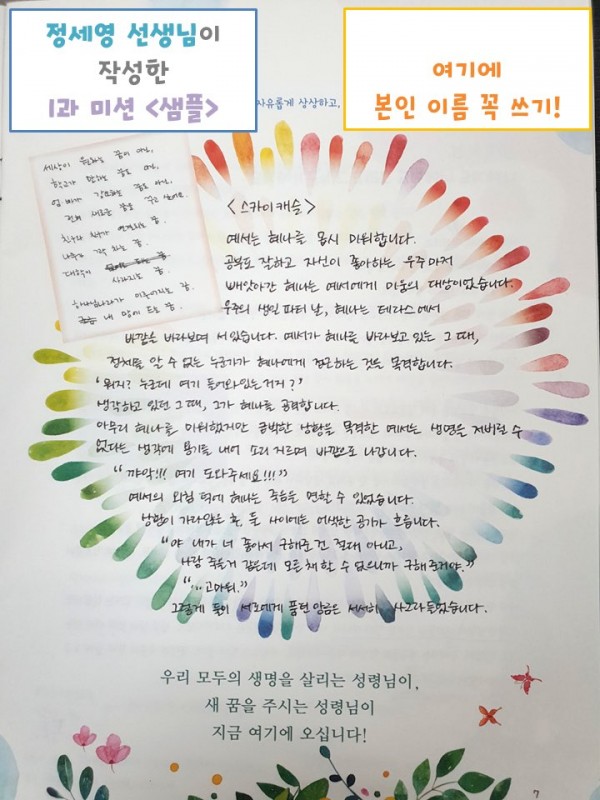 정세영 선생님이
작성한
1과 미션 <샘플>
여기에
본인 이름 꼭 쓰기!
자유롭게 상상하고,
세상이 원하는 꿈이 아닌,
학교가 만드는 꿈도 아닌,
엄마가 강요하는 꿈도 아닌,
전혀 새로운 꿈을 꾸고 싶어요.
친구와 친구가 연결되는 꿈.
나눔이 가득 차는 꿈.
대학이 사라지는 꿈.
하나님나라가 이루어지는 꿈.
내 맘에 드는 꿈.
<스카이캐슬>
예서는 혜나를 몹시 미워합니다.
공부도 잘하고 자신이 좋아하는 우주마저
빼앗아간 혜나는 예서에게 미움의 대상이었습니다.
우주의 생일파티 날, 혜나는 테라스에서
바깥은 바라보며 서있습니다. 예서가 혜나를 바라보고 있는 그 때,
정체를 알 수 없는 누군가가 혜나에게 접근하는 것을 목격합니다.
'뭐지? 누군데 여기 들어와있는거지?'
생각하고 있던 그 때, 그가 혜나를 공격합니다.
아무리 혜나를 미워했지만 급박한 상황을 목격한 예서는 생명을 저버릴 수
없다는 생각에 용기를 내어 소리 지르며 바깥으로 나갑니다.
"꺄악!!! 여기 도와주세요!!!"
예서의 외침 덕에 혜나는 죽음을 면할 수 있었습니다.
상황이 가라앉은 후, 둘 사이에는 어색한 공기가 흐릅니다.
"야 내가 너 좋아서 구해준 건 절대 아니고,
사람 죽을거 같은데 모른 체 할 수 없으니까 구해준거야."
"…고마워."
그렇게 둘이 서로에게 품던 앙금은 서서히 사그라들었습니다.
우리 모두의 생명을 살리는 성령님이,
새 꿈을 주시는 성령님이
지금 여기에 오십니다!
7